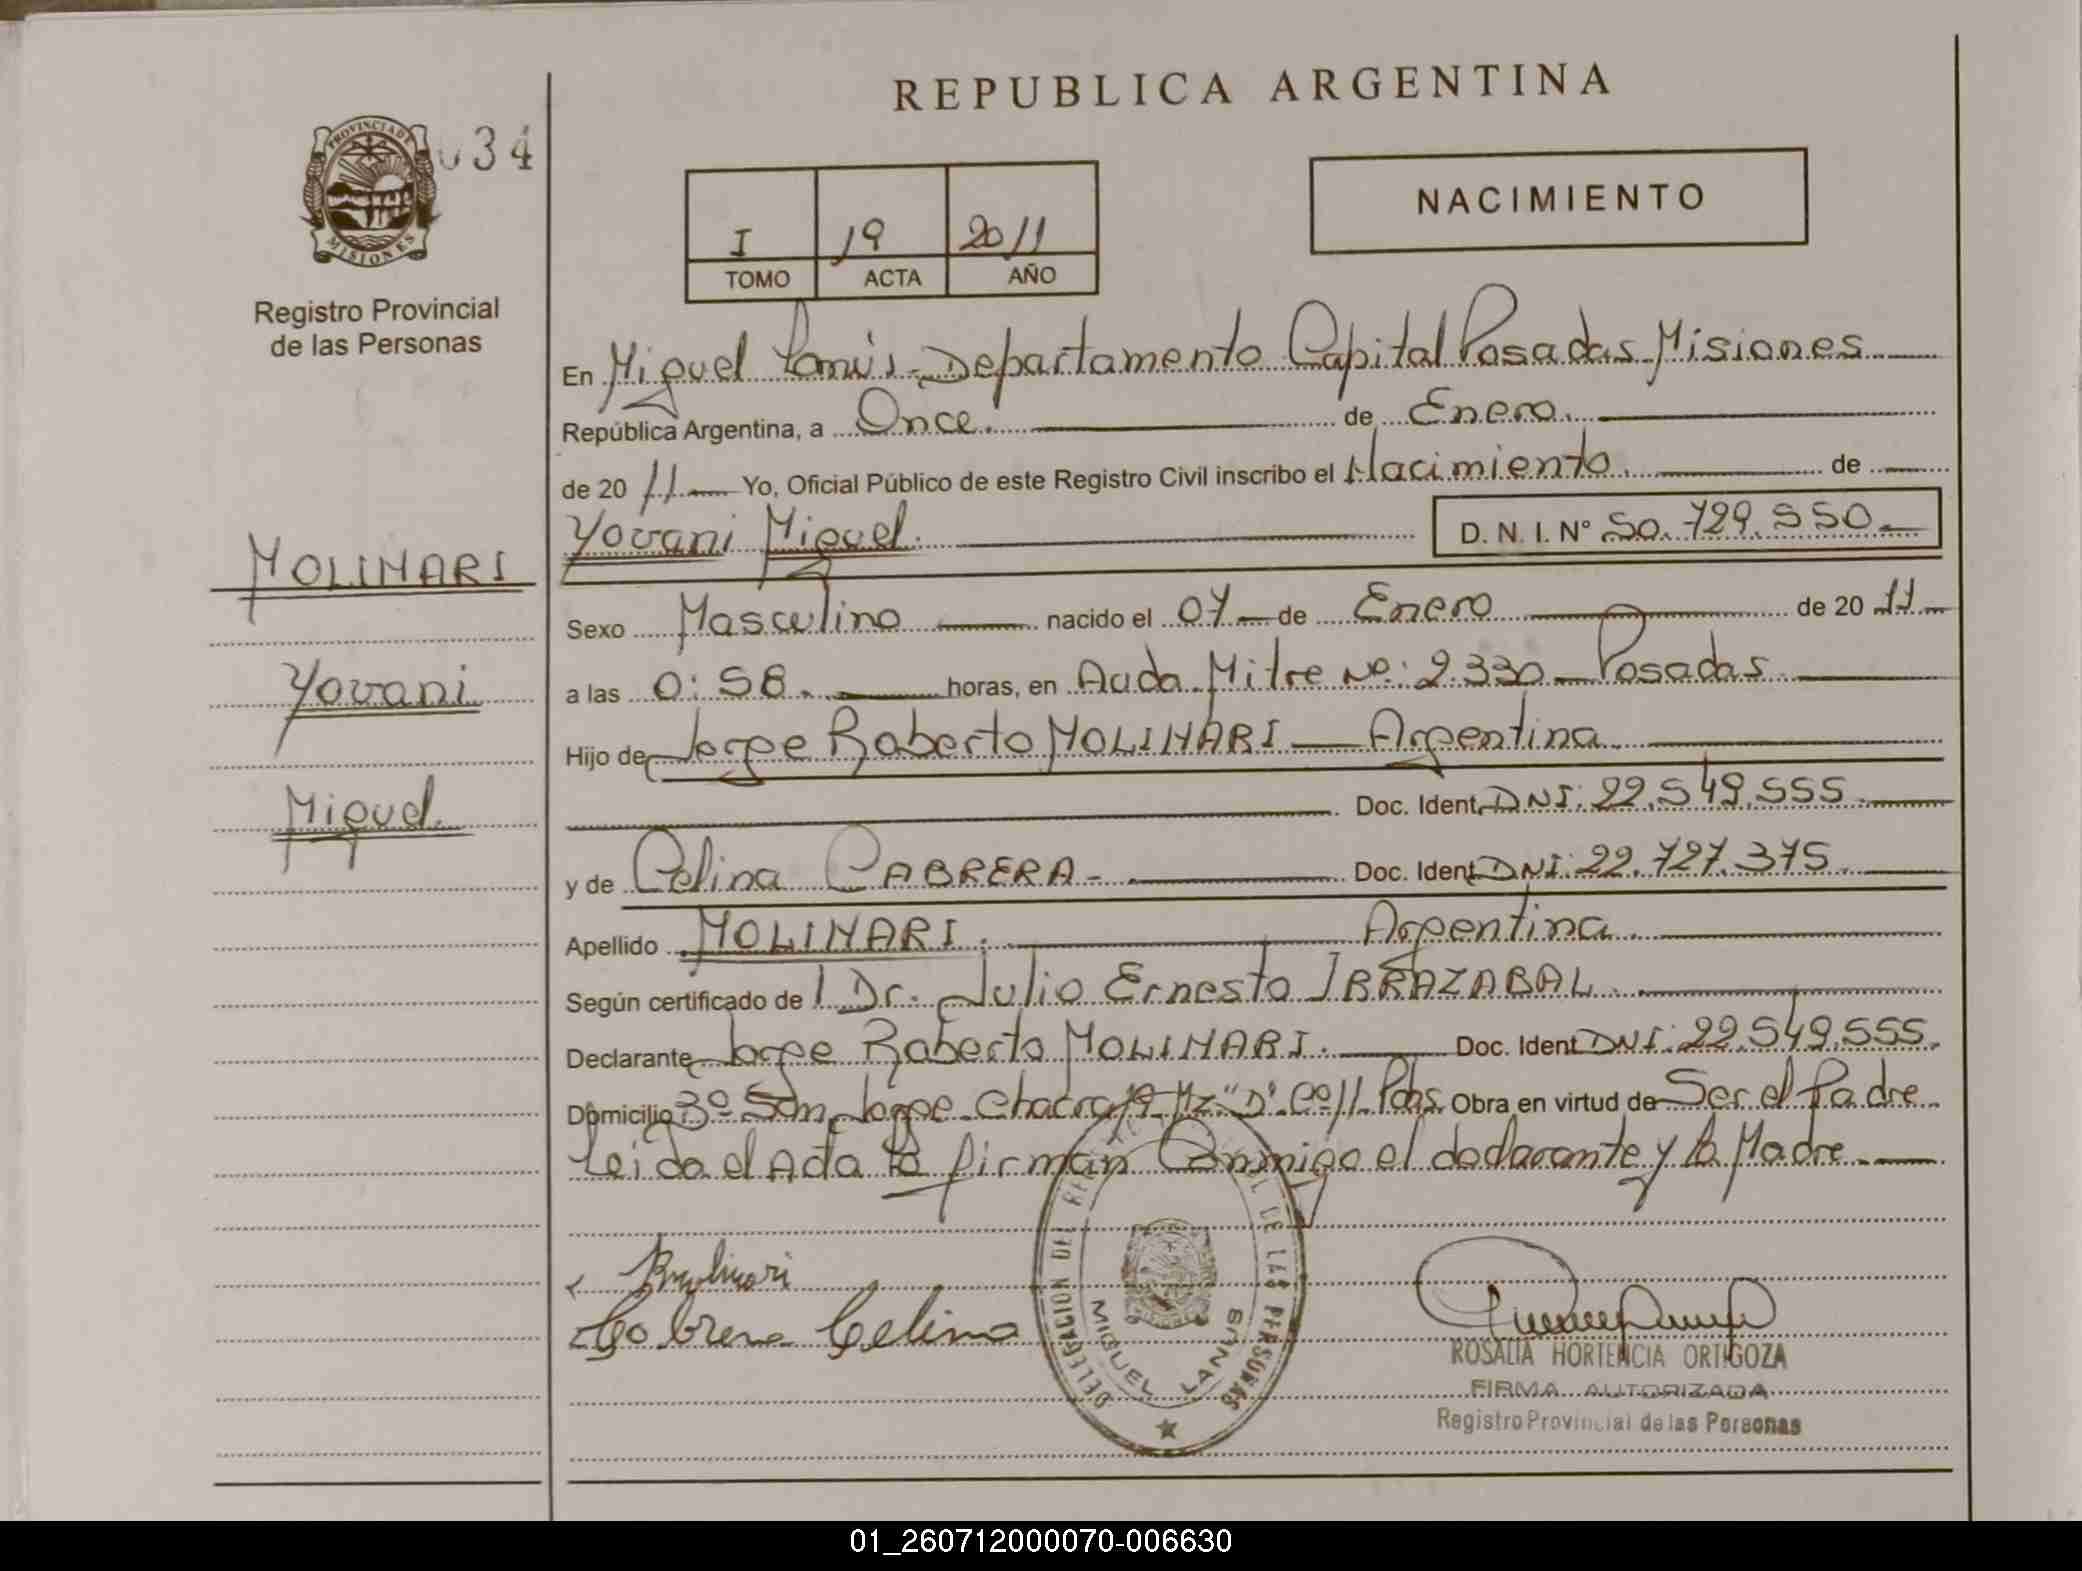 REPUBLICA ARGENTINA
PROVINCIA DE MISIONES
034
Registro Provincial
de las Personas
NACIMIENTO
I 19 2011
TOMO ACTA AÑO
En Miguel Lanús - Departamento Capital Posadas Misiones
República Argentina, a Once. de Enero.
de 20 11 Yo, Oficial Público de este Registro Civil inscribo el Nacimiento. de
Yovani Miguel. D. N. I. N° 50.729.550.
MOLINARI
Yovani
Miguel.
Sexo Masculino nacido el 07 de Enero de 20 11
a las 0:58. horas, en Avda. Mitre Nº: 2.330 - Posadas
Hijo de Jorge Roberto MOLINARI - Argentina
Doc. Ident DNI: 22.549.555.
y de Celina CABRERA - Doc. Ident DNI: 22.727.375.
Apellido MOLINARI. Argentina.
Según certificado de l Dr. Julio Ernesto IRRAZABAL.
Declarante Jorge Roberto MOLINARI. Doc. Ident DNI: 22.549.555.
Domicilio Jorge Chacra Mz "D" Pdas. Obra en virtud de Ser el Padre
Leida el Acta la firman Conmigo el declarante y la Madre
Molinari
Cabrera Celina
DELEGACION DEL REGISTRO DE LAS PERSONAS
MIGUEL LANUS
ROSALIA HORTENCIA ORTIGOZA
FIRMA AUTORIZADA
Registro Provincial de las Personas
01_260712000070-006630